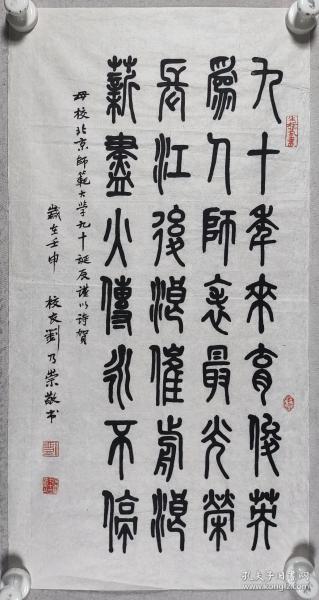 九十年來育俊英
爲人師表最光榮
長江後浪催前浪
薪盡火傳永不停
母校北京師範大学九十诞辰谨以诗贺
歲在壬申 校友劉乃崇敬书
孔夫子旧书网